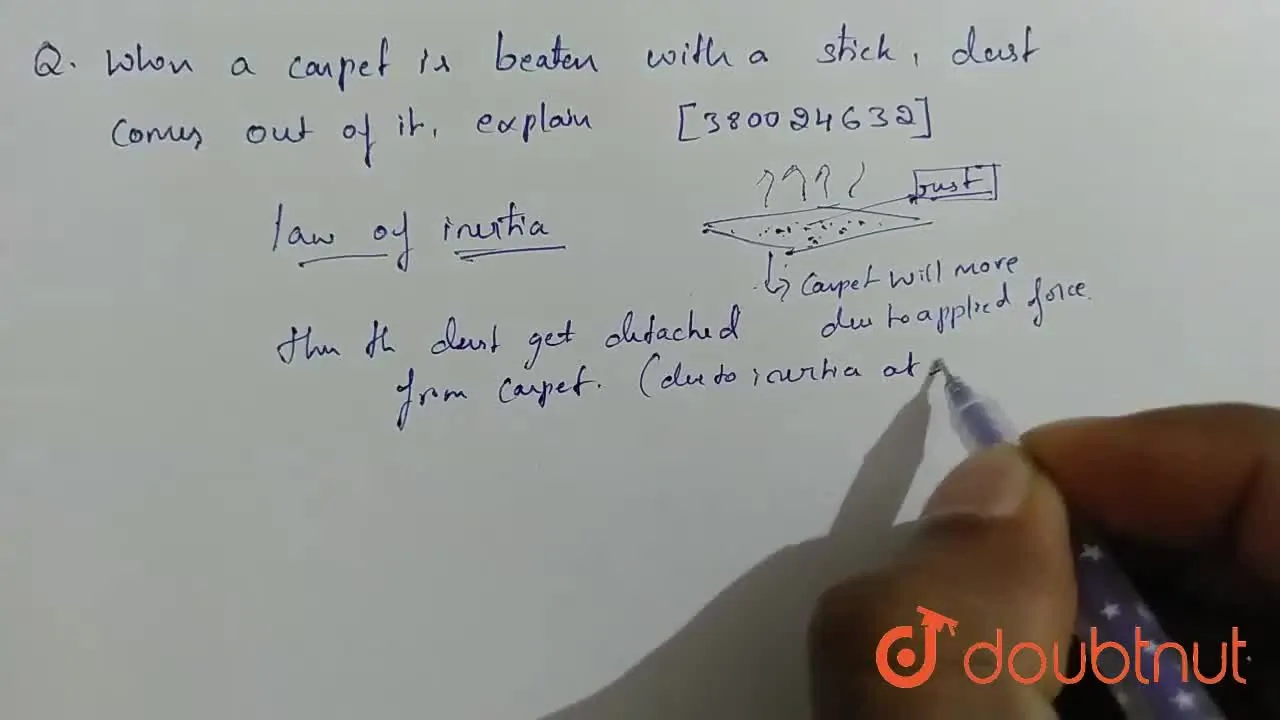 Q. When a carpet is beaten with a stick, dust
comes out of it, explain [380024632]
law of inertia
dust
carpet will move
due to applied force.
then th dust get detached
from carpet. (due to inertia at
doubtnut